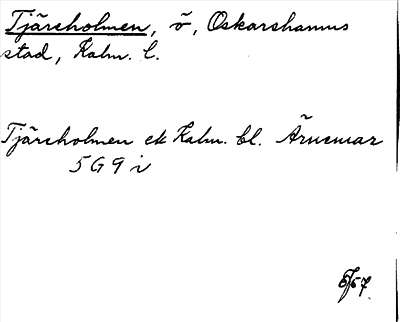 Tjärholmen, ö, Oskarshamns
stad, Kalm. l.
Tjärholmen ek Kalm. bl. Ärnemar
5G9i